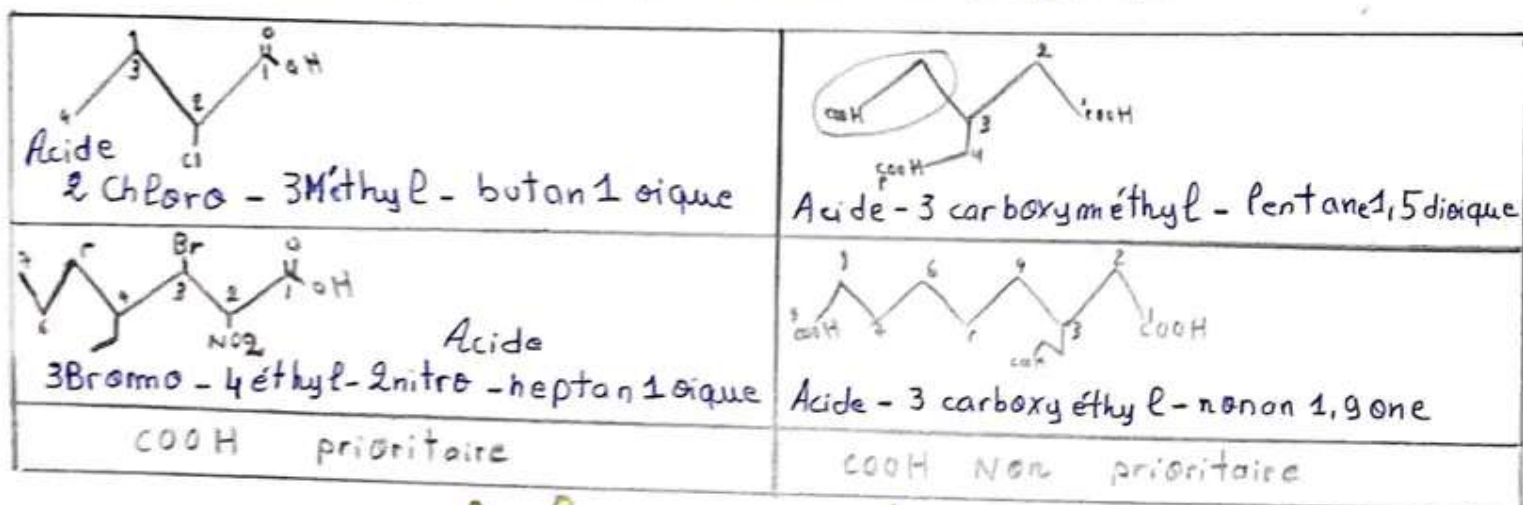 1
O
3
1
OH
4
2
Cl
Acide
2 Chloro - 3Méthyl - butan 1 oique
2
COOH
COOH
3
4
COOH
Acide - 3 carboxyméthyl - Pentane 1,5 dioique
Br
O
7
4
3
2
1
OH
6
NO2
Acide
3Bromo - 4éthyl - 2nitro - heptan 1 oique
6
4
2
COOH
7
3
COOH
Acide - 3 carboxy éthyl - nonan 1,9 one
COOH prioritaire
COOH Non prioritaire